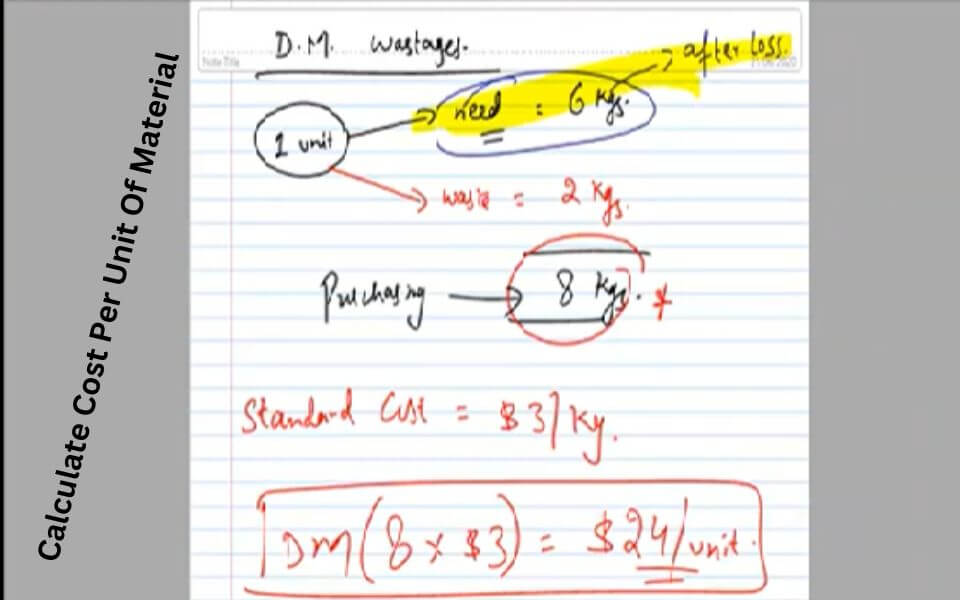 Calculate Cost Per Unit Of Material
D.M. wastages.
Note Title
after loss.
1 unit
need : 6 Kgs.
waste = 2 Kgs.
Purchasing → 8 Kgs. *
Standard Cost = $3/Kg.
DM (8 x $3) = $24/unit.